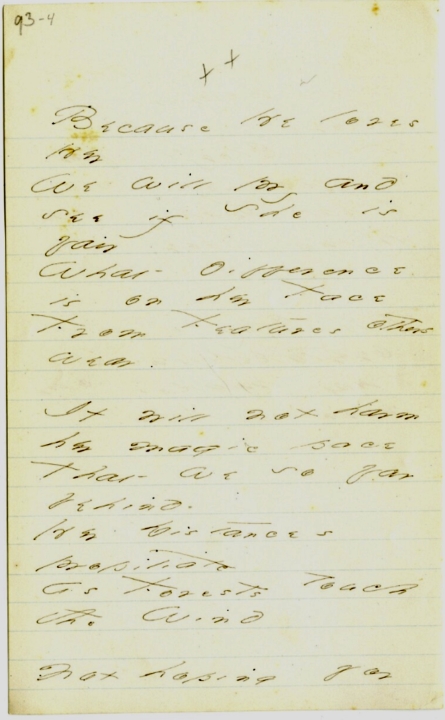 93-4
x x
Because He loves
Her
We will pry and
see if she is
fair
What difference
is on her Face
From Features others
wear.
It will not harm
her magic pace
That we so far
behind -
Her Distances
propitiate
As Forests touch
the Wind
Not hoping for